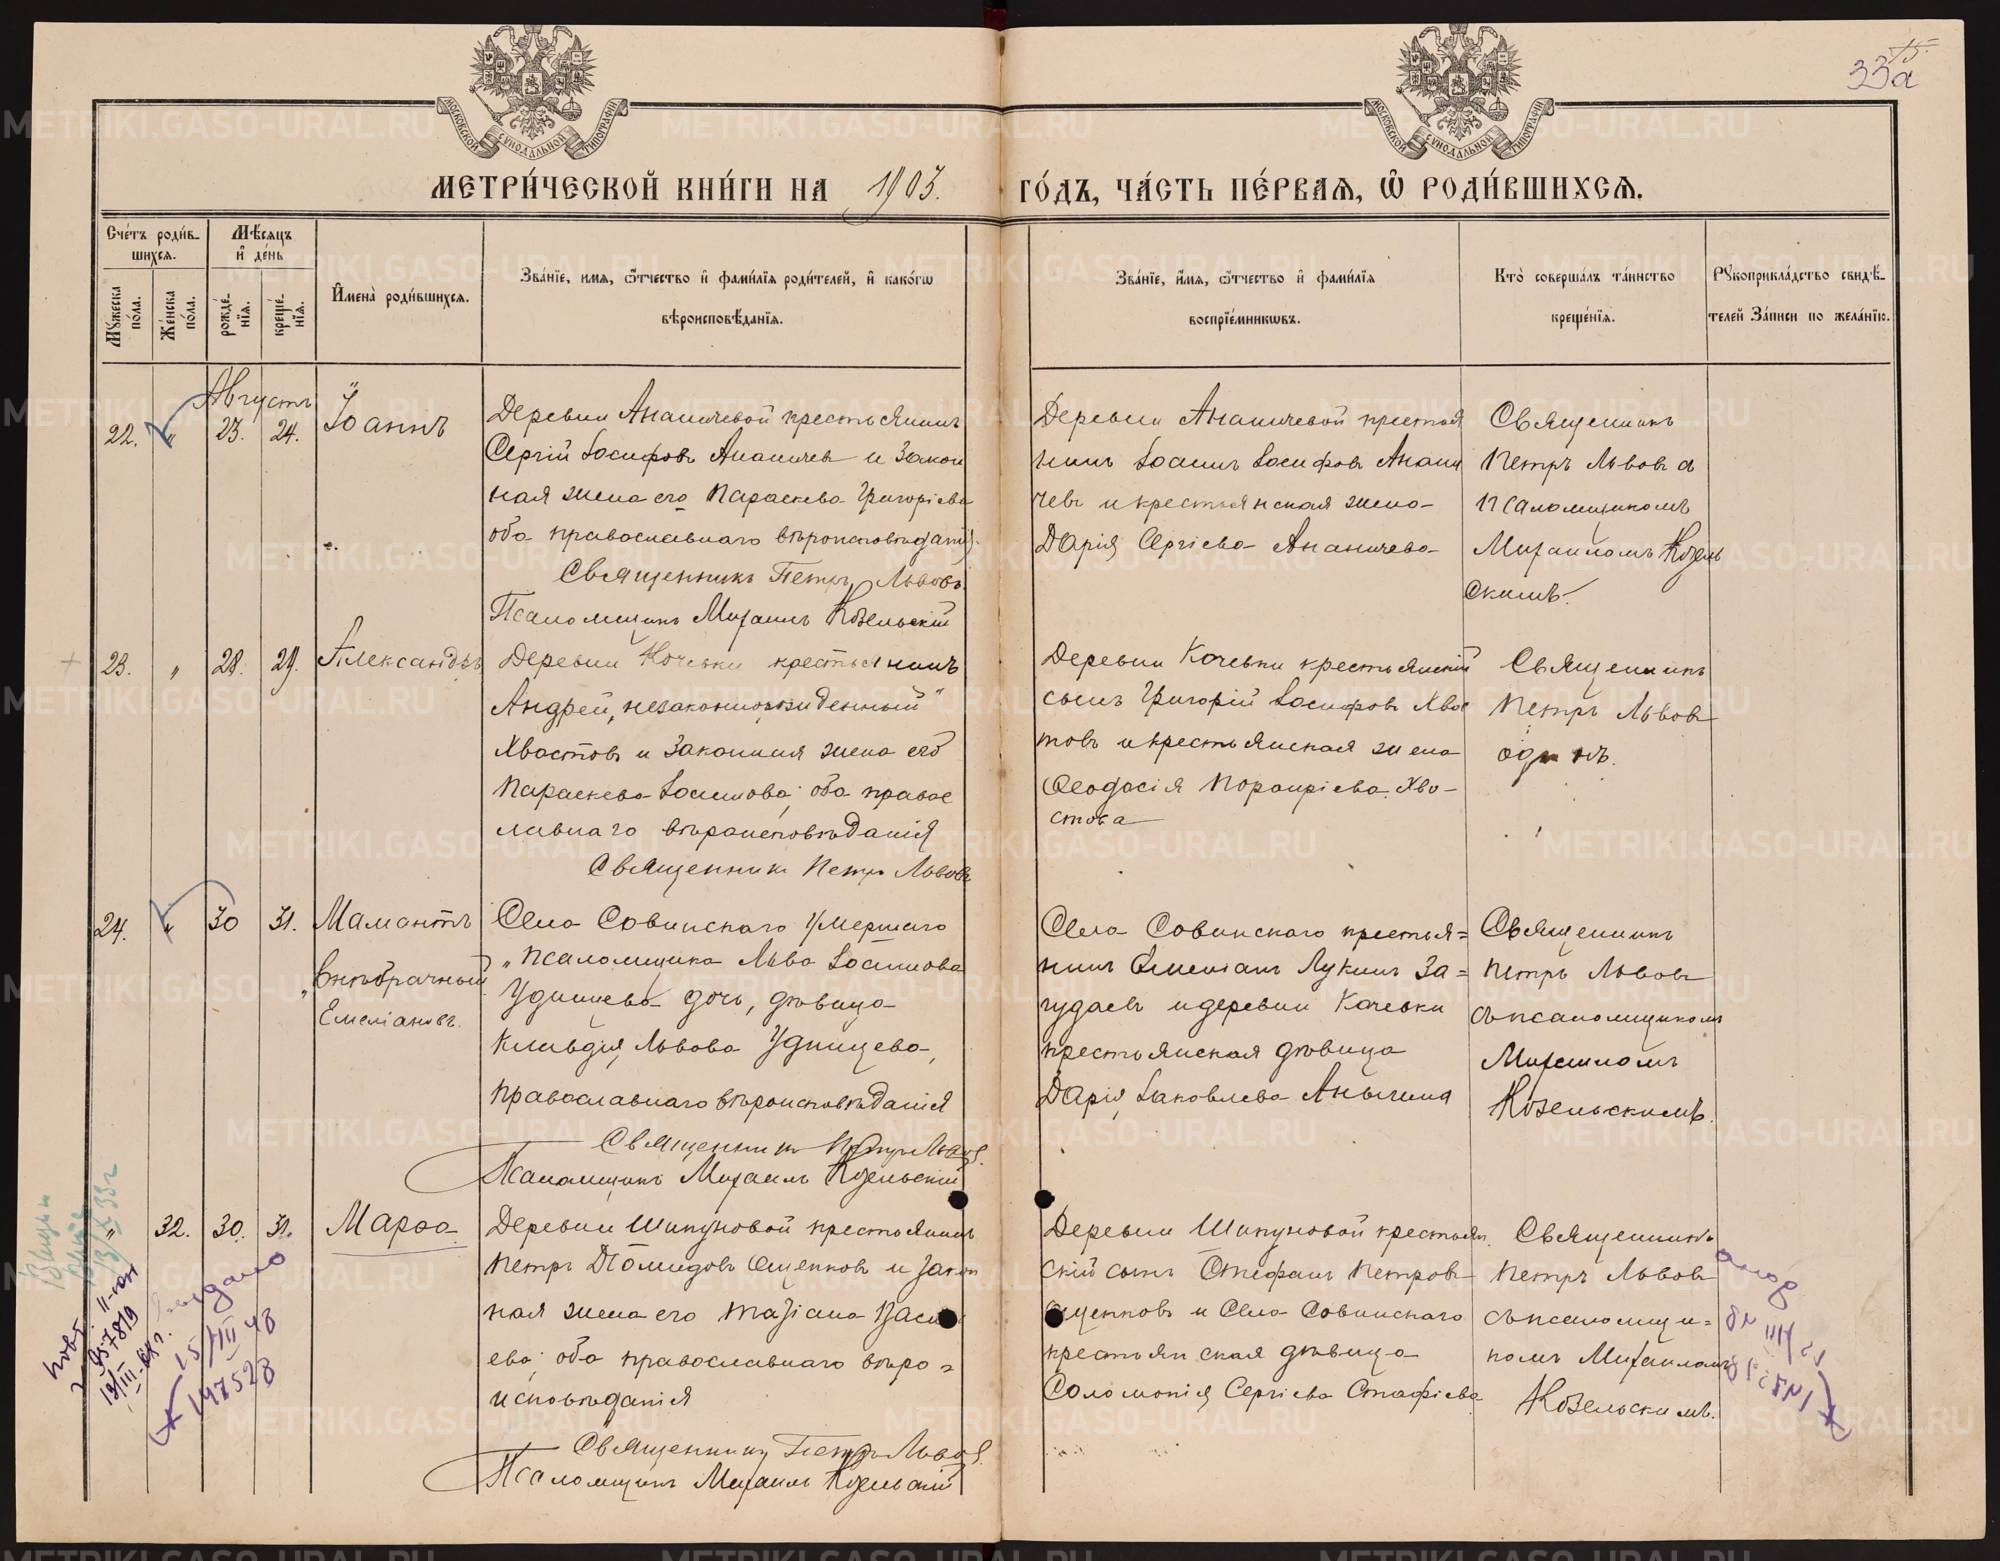 МОСКОВСКОЙ СѴНОДАЛЬНОЙ ТИПОГРАФІИ
МОСКОВСКОЙ СѴНОДАЛЬНОЙ ТИПОГРАФІИ
15.
33а
МЕТРИ́ЧЕСКОЙ КНИ́ГИ НА 1903. ГО́ДЪ, ЧА́СТЬ ПЕ́РВАѦ, Ѡ҆ РОДИ́ВШИХСѦ.
Сче́тъ роди́в-
шихсѧ.
Мѣ́сѧцъ
и҆ де́нь
Мꙋжеска по́ла.
Же́нска по́ла.
рожде́-
нїѧ.
креще́-
нїѧ.
И҆мена̀ роди́вшихсѧ.
Зва́нїе, имѧ, ѻ҆́тчество и҆ фами́лїѧ роди́телей, и҆ како́гѡ
вѣроисповѣ́данїѧ.
Зва́нїе, и҆́мѧ, ѻ҆́тчество и҆ фами́лїѧ
воспрїе́мникѡвъ.
Кто̀ соверша́лъ та́инство
креще́нїѧ.
Рꙋкоприкла́дство свидѣ́-
телей За́писи по жела́нїю.
Августъ
22. " 23. 24. Іоаннъ
Деревни Ананичевой крестьянинъ
Сергій Іосифовъ Ананичев и закон
ная жена его Параскева Григоріева
оба православнаго вѣроисповѣданія.
Священникъ Петръ Львовъ.
Псаломщикъ Михаилъ Козельскій
Деревни Ананичевой крестья
нинъ Іоаннъ Іосифовъ Анани
чевъ и крестьянская жена
Дарія Сергіева Ананичева
Священникъ
Петръ Львовъ а
псаломщикомъ
Михаиломъ Козель
скимъ.
23. " 28. 29. Александръ
Деревни Кочевки крестьянинъ
Андрей, незаконнорожденный"
Хвостовъ и законная жена его
Параскева Іоаннова; оба правос
лавнаго вѣроисповѣданія
Священникъ Петръ Львовъ
Деревни Кочевки крестьянскій
сынъ Григорій Іосифовъ Хвос
товъ и крестьянская жена
Ѳеодосія Порфиріева Хво-
стова
Священникъ
Петръ Львовъ
одинъ.
24. " 30 31. Мамантъ
"Внѣбрачный
Емеліановъ.
Села Совинскаго умершаго
"псаломщика Льва Іоаннова
Удинцева дочь, дѣвица
Клавдія Львова Удинцева,
православнаго вѣроисповѣданія
Священникъ Петръ Львовъ.
Псаломщикъ Михаилъ Козельскій
Села Совинскаго крестья=
нинъ Емеліанъ Лукинъ За=
гудаевъ и деревни Кочевки
крестьянская дѣвица
Дарія Іаковлева Аньчина
Священникъ
Петръ Львовъ
съ псаломщикомъ
Михаиломъ
Козельскимъ.
" 32. 30. 31. Марѳа
Деревни Шипуновой крестьянинъ
Петръ Діомидовъ Ощепковъ и закон
ная жена его Татіана Васи
ева; оба православнаго вѣро=
исповѣданія
Священникъ Петръ Львовъ.
Псаломщикъ Михаилъ Козельскій
Деревни Шипуновой крестьян
скій сынъ Стефанъ Петровъ
Ощепковъ и Села Совинскаго
крестьянская дѣвица
Соломонія Сергіева Стафіева
Священникъ
Петръ Львовъ
съ псаломщи=
комъ Михаиломъ
Козельскимъ.
Выдано
15/III 48
197528